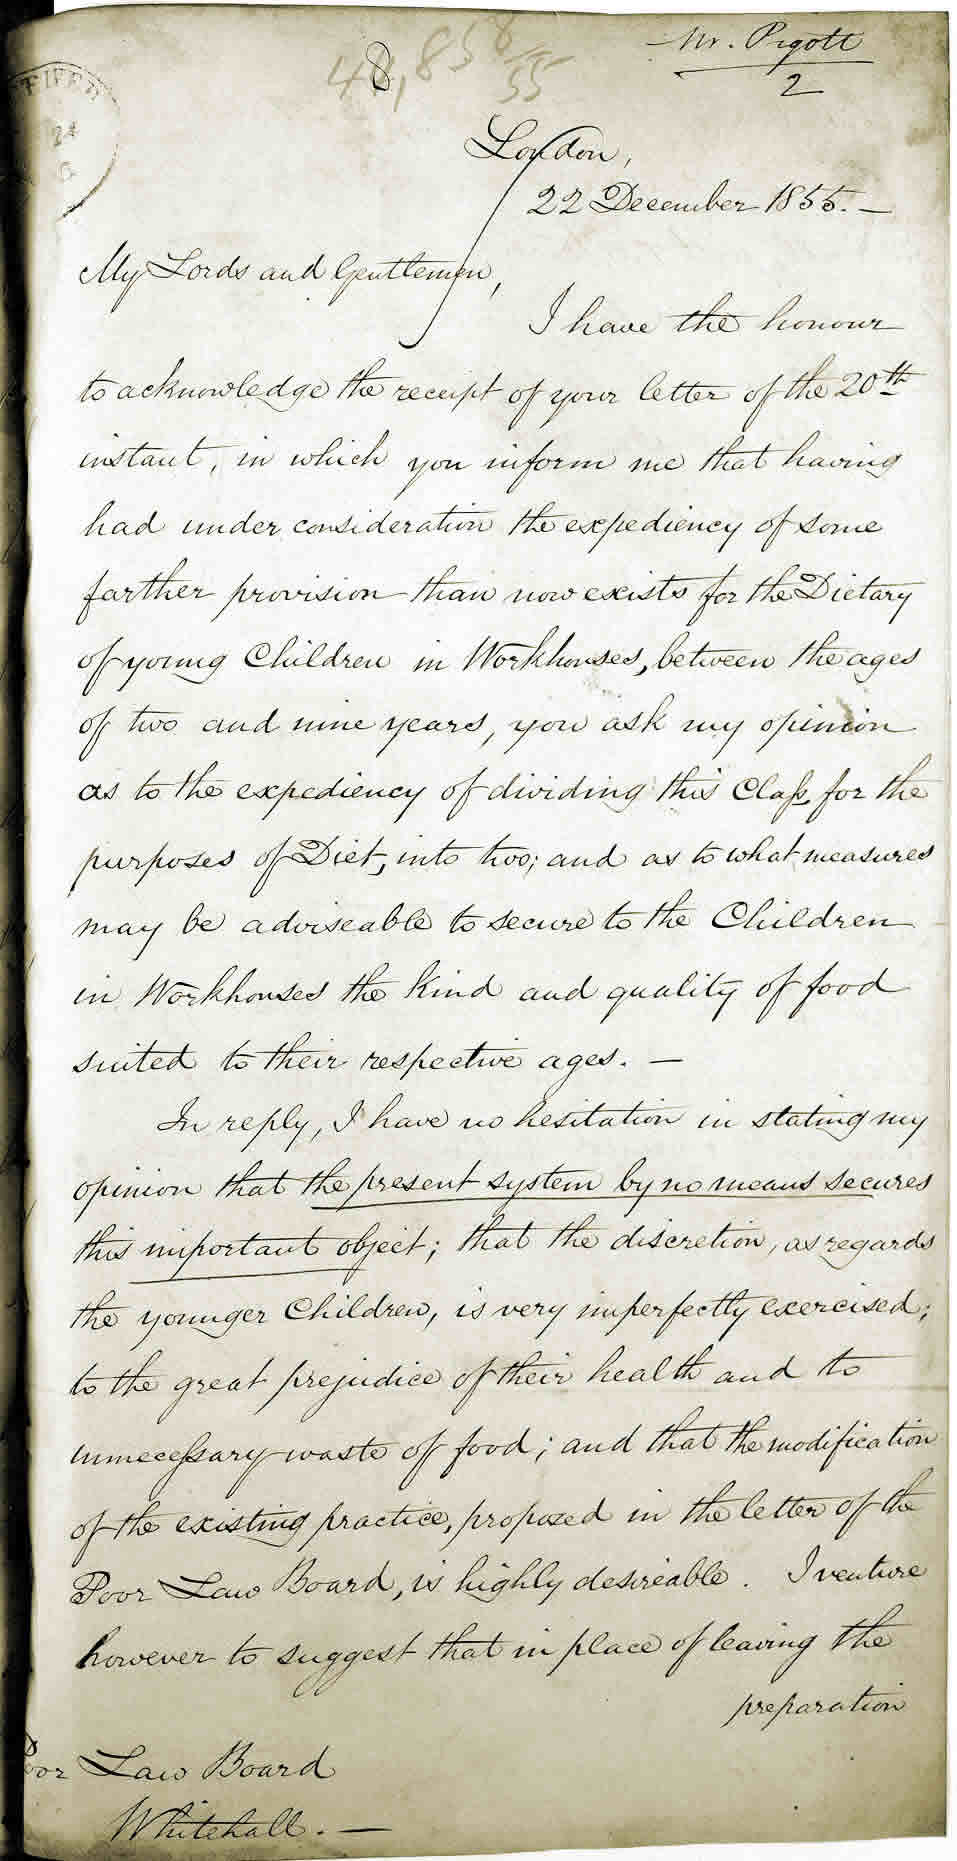 Mr. Pigott
2
48,858
55
24
London,
22 December 1855. —
My Lords and Gentlemen,
I have the honour
to acknowledge the receipt of your letter of the 20th
instant, in which you inform me that having
had under consideration the expediency of some
farther provision than now exists for the Dietary
of young Children in Workhouses, between the ages
of two and nine years, you ask my opinion
as to the expediency of dividing this Claſs, for the
purposes of Diet, into two; and as to what measures
may be adviseable to secure to the Children
in Workhouses the kind and quality of food
suited to their respective ages. —
In reply, I have no hesitation in stating my
opinion that the present system by no means secures
this important object; that the discretion, as regards
the younger Children, is very imperfectly exercised;
to the great prejudice of their health and to
unneceſsary waste of food; and that the modification
of the existing practice, proposed in the letter of the
Poor Law Board, is highly desireable. I venture
however to suggest that in place of leaving the
preparation
Poor Law Board
Whitehall. —